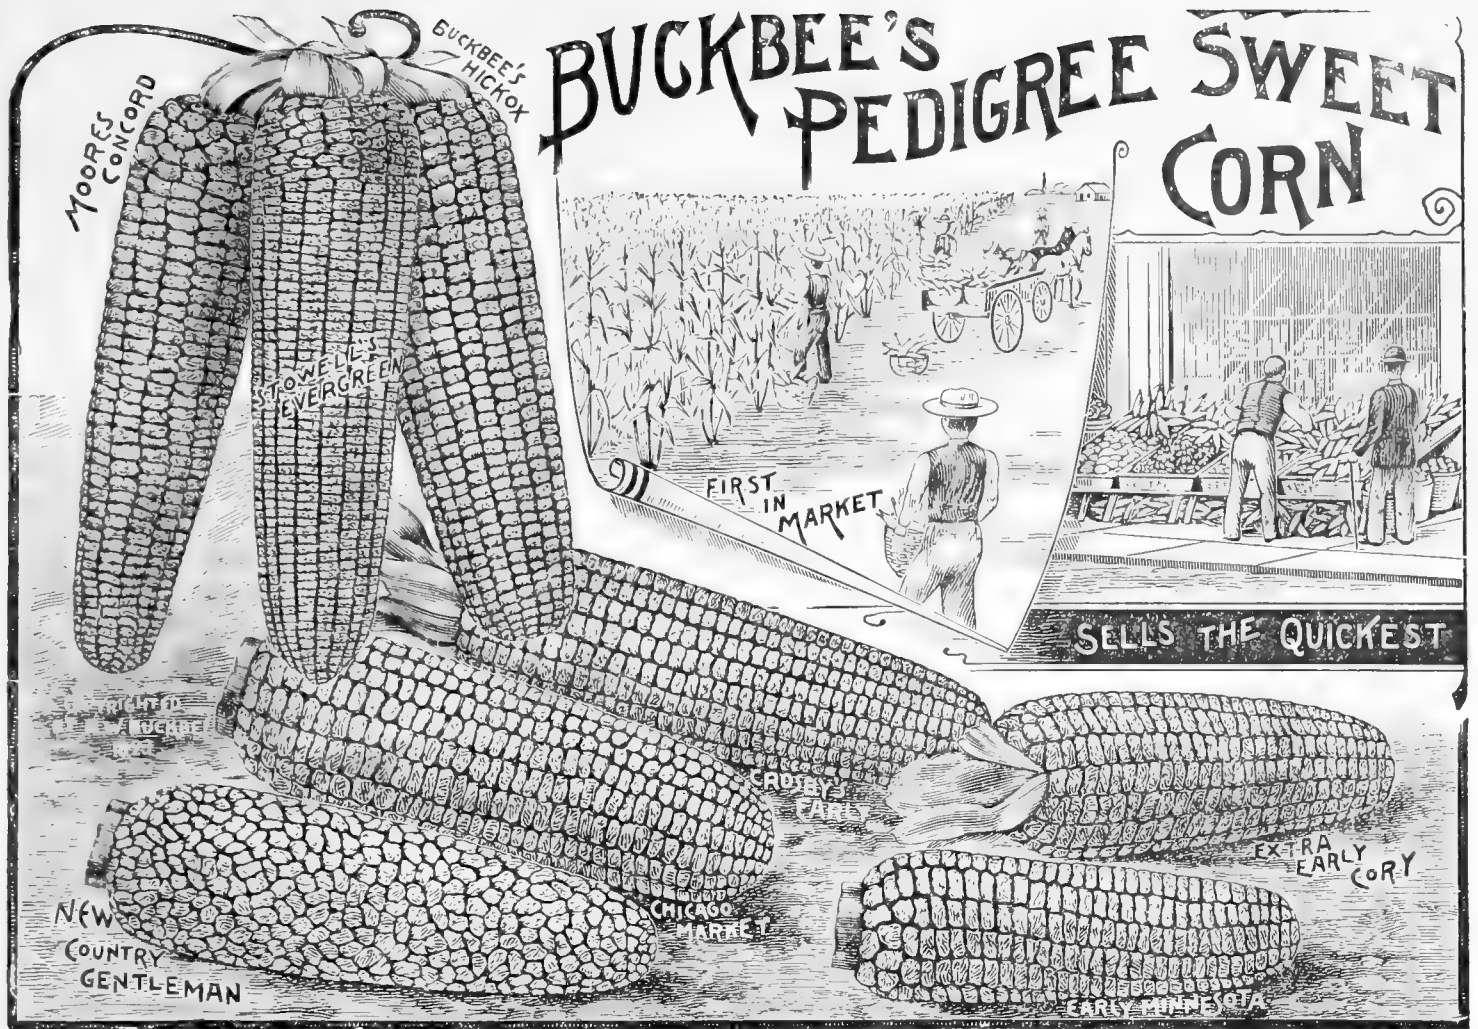 BUCKBEE'S
PEDIGREE SWEET
CORN
MOORES
CONCORD
BUCKBEE'S
HICKOX
STOWELL'S
EVERGREEN
FIRST
IN
MARKET
SELLS THE QUICKEST
CROSBY'S
EARLY
EXTRA
EARLY
CORY
CHICAGO
MARKET
NEW
COUNTRY
GENTLEMAN
EARLY MINNESOTA